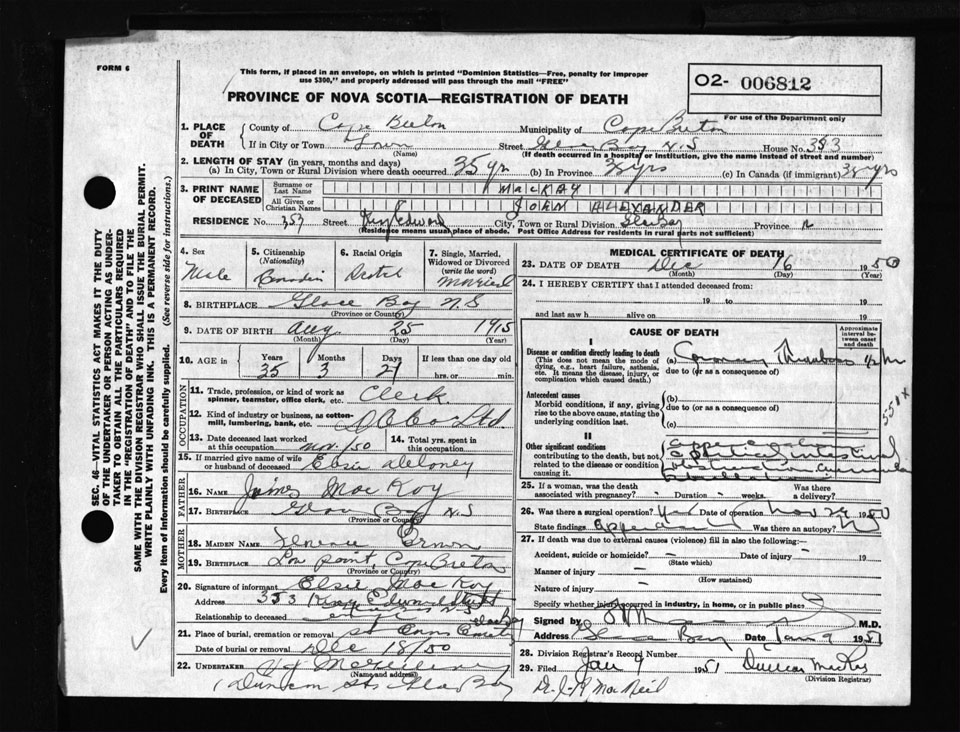 FORM 6
This form, if placed in an envelope, on which is printed "Dominion Statistics—Free, penalty for improper
use $300," and properly addressed will pass through the mail "FREE"
O2- 006812
For use of the Department only
PROVINCE OF NOVA SCOTIA—REGISTRATION OF DEATH
1. PLACE OF DEATH { County of Cape Breton Municipality of Cape Breton
If in City or Town Town Street Glace Bay N.S House No. 353
(Name) (If death occurred in a hospital or institution, give the name instead of street and number)
2. LENGTH OF STAY (in years, months and days)
(a) In City, Town or Rural Division where death occurred 35 yr (b) In Province 38 yrs (c) In Canada (if immigrant) 38 yrs
3. PRINT NAME OF DECEASED { Surname or Last Name MACKAY
All Given or Christian Names JOHN ALEXANDER
RESIDENCE No. 353 Street King Edward City, Town or Rural Division Glace Bay Province
(Residence means usual place of abode. Post Office Address for residents in rural parts not sufficient)
4. Sex Male
5. Citizenship (Nationality)
6. Racial Origin
7. Single, Married, Widowed or Divorced (write the word) Married
8. BIRTHPLACE Glace Bay N.S
(Province or Country)
9. DATE OF BIRTH Aug 25 1915
(Month) (Day) (Year)
10. AGE in Years 35 Months 3 Days 21 If less than one day old
hrs. or min.
OCCUPATION
11. Trade, profession, or kind of work as
spinner, teamster, office clerk, etc. Clerk
12. Kind of industry or business, as cotton-
mill, lumbering, bank, etc. Ltd
13. Date deceased last worked
at this occupation Nov/50
14. Total yrs. spent in
this occupation
15. If married give name of wife
or husband of deceased Elsie Deloney
FATHER
16. NAME James MacKay
17. BIRTHPLACE Glace Bay N.S
(Province or Country)
MOTHER
18. MAIDEN NAME Florence Brown
19. BIRTHPLACE point, Cape Breton
(Province or Country)
20. Signature of informant Elsie MacKay
Address 353 King Edward Street
Relationship to deceased
21. Place of burial, cremation or removal St Anns
Date of burial or removal Dec 18/50
22. UNDERTAKER
(Name and address)
Glace Bay
MEDICAL CERTIFICATE OF DEATH
23. DATE OF DEATH Dec 16 1950
(Month) (Day) (Year)
24. I HEREBY CERTIFY that I attended deceased from:
19 to 19
and last saw h alive on 19
CAUSE OF DEATH
Approximate interval between onset and death
I
Disease or condition directly leading to death
(This does not mean the mode of
dying, e.g., heart failure, asthenia,
etc. It means the disease, injury, or
complication which caused death.)
(a) Coronary Thrombosis
due to (or as a consequence of)
Antecedent causes
Morbid conditions, if any, giving
rise to the above cause, stating the
underlying condition last.
(b)
due to (or as a consequence of)
(c)
II
Other significant conditions
contributing to the death, but not
related to the disease or condition
causing it.
25. If a woman, was the death
associated with pregnancy? - Duration - weeks. Was there
a delivery?
26. Was there a surgical operation? Date of operation Nov 1950
State findings Was there an autopsy?
27. If death was due to external causes (violence) fill in also the following:—
Accident, suicide or homicide? — Date of injury —
(State which)
Manner of injury —
(How sustained)
Nature of injury —
Specify whether injury occurred in industry, in home, or in public place
Signed by M.D.
Address Glace Bay Date Jan 9 1951
28. Division Registrar's Record Number
29. Filed Jan 9 1951 Duncan
(Division Registrar)
MacNeil
SEC. 46—VITAL STATISTICS ACT MAKES IT THE DUTY
OF THE UNDERTAKER OR PERSON ACTING AS UNDER-
TAKER TO OBTAIN ALL THE PARTICULARS REQUIRED
IN THE "REGISTRATION OF DEATH" AND TO FILE THE
SAME WITH THE DIVISION REGISTRAR WHO SHALL ISSUE THE BURIAL PERMIT.
WRITE PLAINLY WITH UNFADING INK. THIS IS A PERMANENT RECORD.
Every item of information should be carefully supplied. (See reverse side for instructions.)